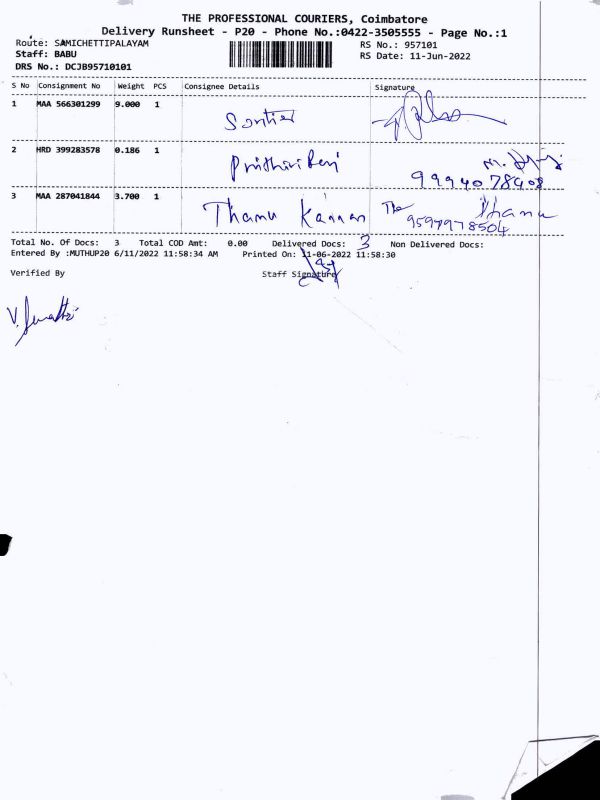 THE PROFESSIONAL COURIERS, Coimbatore
Delivery Runsheet - P20 - Phone No.:0422-3505555 - Page No.:1
Route: SAMICHETTIPALAYAM RS No.: 957101
Staff: BABU RS Date: 11-Jun-2022
DRS No.: DCJB95710101
S No Consignment No Weight PCS Consignee Details Signature
1 MAA 566301299 9.000 1
2 HRD 399283578 0.186 1
9994078408
3 MAA 287041844 3.700 1 Thamu Kannan Dhanu
9597978504
Total No. Of Docs: 3 Total COD Amt: 0.00 Delivered Docs: 3 Non Delivered Docs:
Entered By :MUTHUP20 6/11/2022 11:58:34 AM Printed On: 11-06-2022 11:58:30
Verified By Staff Signature